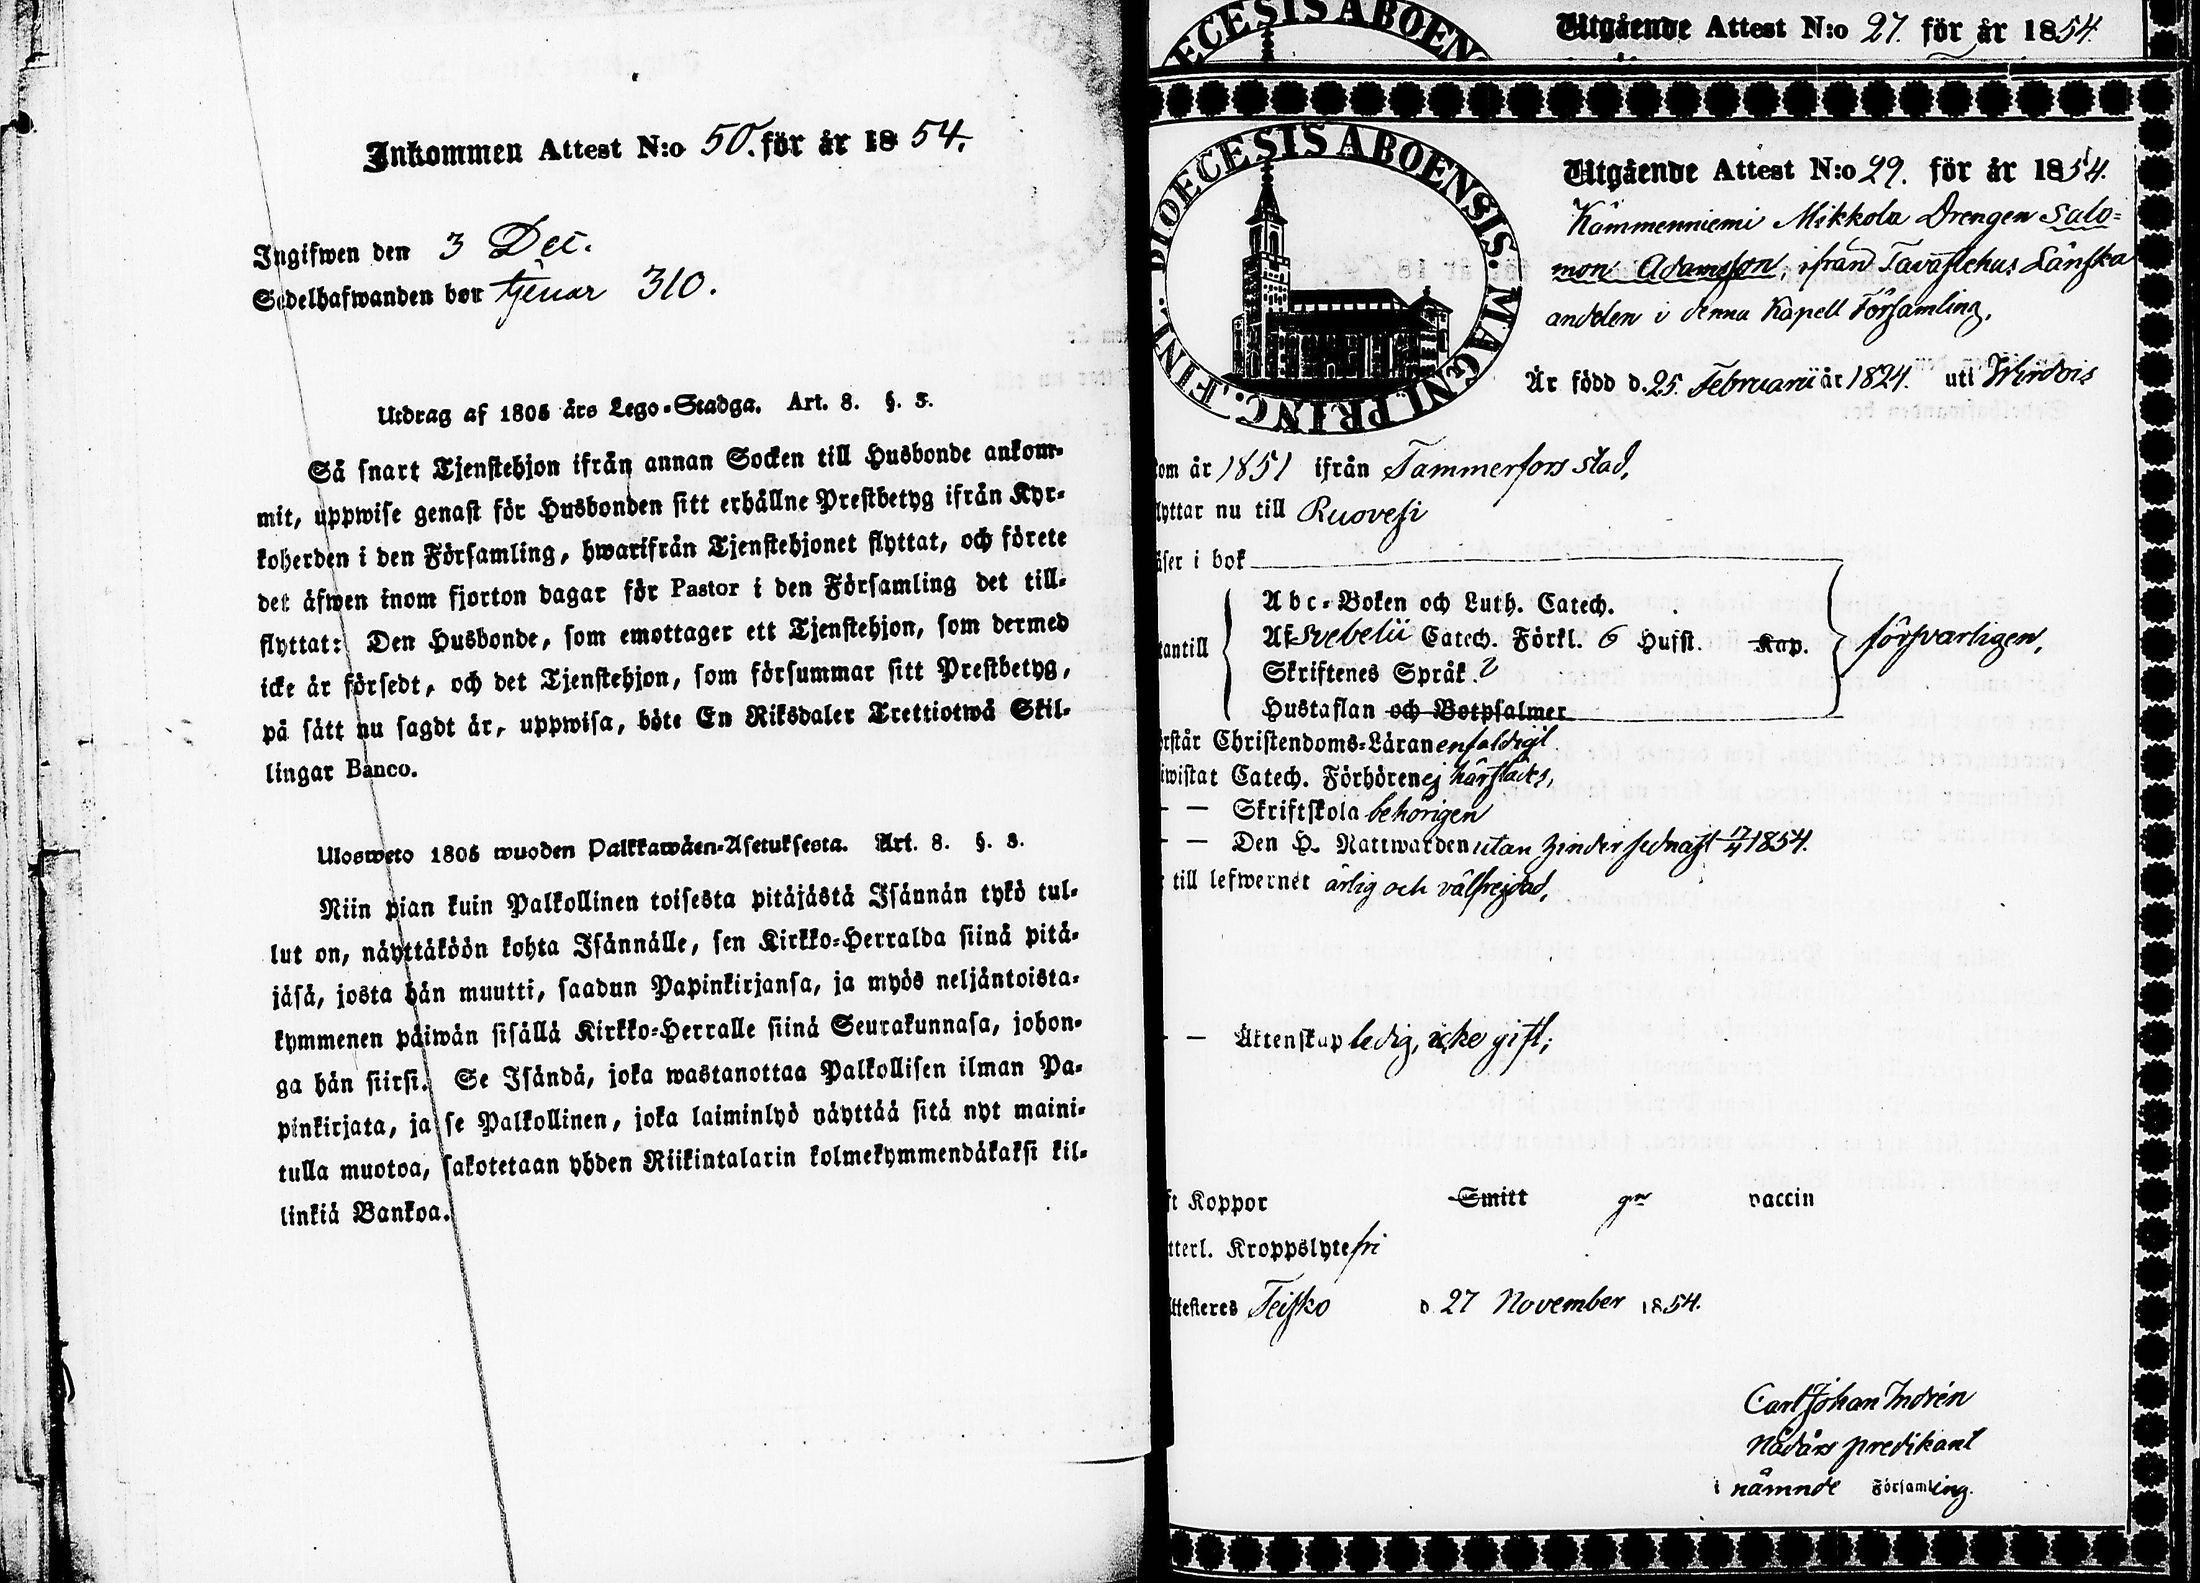 Inkommen Attest N:o 50. för år 1854.
Ingifwen den 3 Dec.
Sedelhafwanden bor tjenar 310.
Utdrag af 1805 års Lego-Stadga. Art. 8. §. 3.
Så snart Tjenstehjon ifrån annan Socken till Husbonde ankom-
mit, uppwise genast för Husbonden sitt erhållne Prestbetyg ifrån Kyr-
koherden i den Församling, hwarifrån Tjenstehjonet flyttat, och förete
det äfwen inom fjorton dagar för Pastor i den Församling det till-
flyttat: Den Husbonde, som emottager ett Tjenstehjon, som dermed
icke är försedt, och det Tjenstehjon, som försummar sitt Prestbetyg,
på sätt nu sagdt är, uppwisa, böte En Riksdaler Trettiotwå Skil-
lingar Banco.
Ulosweto 1805 wuoden Palkkawäen-Asetuksesta. Art. 8. §. 3.
Niin pian kuin Palkollinen toisesta pitäjästä Isännän tykö tul-
lut on, näyttäköön kohta Isännälle, sen Kirkko-Herralda siinä pitä-
jäsä, josta hän muutti, saadun Papinkirjansa, ja myös neljäntoista-
kymmenen päiwän sisällä Kirkko-Herralle siinä Seurakunnasa, johon-
ga hän siirsi. Se Isändä, joka wastanottaa Palkollisen ilman Pa-
pinkirjata, ja se Palkollinen, joka laiminlyö näyttää sitä nyt maini-
tulla muotoa, sakotetaan yhden Riikintalarin kolmekymmendäkaksi kil-
linkiä Bankoa.
DIOECESIS ABOENS
Utgående Attest N:o 27. för år 1854.
DIOECESIS ABOENSIS. MAGNI PRINC. FINL.
Utgående Attest N:o 29. för år 1854.
Kämmenniemi Mikkola Drengen Salo-
mon Adamsson, ifrån Tavastehus Länska
andelen i denna Kapell Församling.
Är född d. 25. Februarii år 1824. uti Wirdois
kom år 1851 ifrån Tammerfors stad,
flyttar nu till Ruovesi
äser i bok
Abc-Boken och Luth. Catech.
utantill Af Svebelii Catech. Förkl. 6 Hufst. Kap. försvarligen,
Skriftenes Språk.
Hustaflan och Botpsalmer
örstår Christendoms-Läran enfaldigt
iwistat Catech. Förhören ej härstädes,
— — Skriftskola behörigen
— — Den H. Nattwarden utan hinder sednast 17/4 1854.
till lefwernet ärlig och välfrejdad,
— — Äktenskap ledig, icke gift;
ft Koppor Smitt gm vaccin
tterl. Kroppslyte fri
ttesteres Teisko d. 27 November 1854.
Carl Johan Indrén
Nådårs predikant
i nämnde Församling.